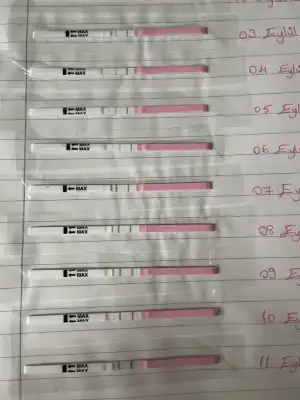 ← MAX
← MAX
03 Eylül
← MAX
← MAX
04 Eylül
← MAX
← MAX
05 Eyl
← MAX
← MAX
06 Eyl
← MAX
← MAX
07 Ey
← MAX
← MAX
08 Ey
← MAX
← MAX
09 E
← MAX
← MAX
10 Ey
← MAX
← MAX
11 Eyl